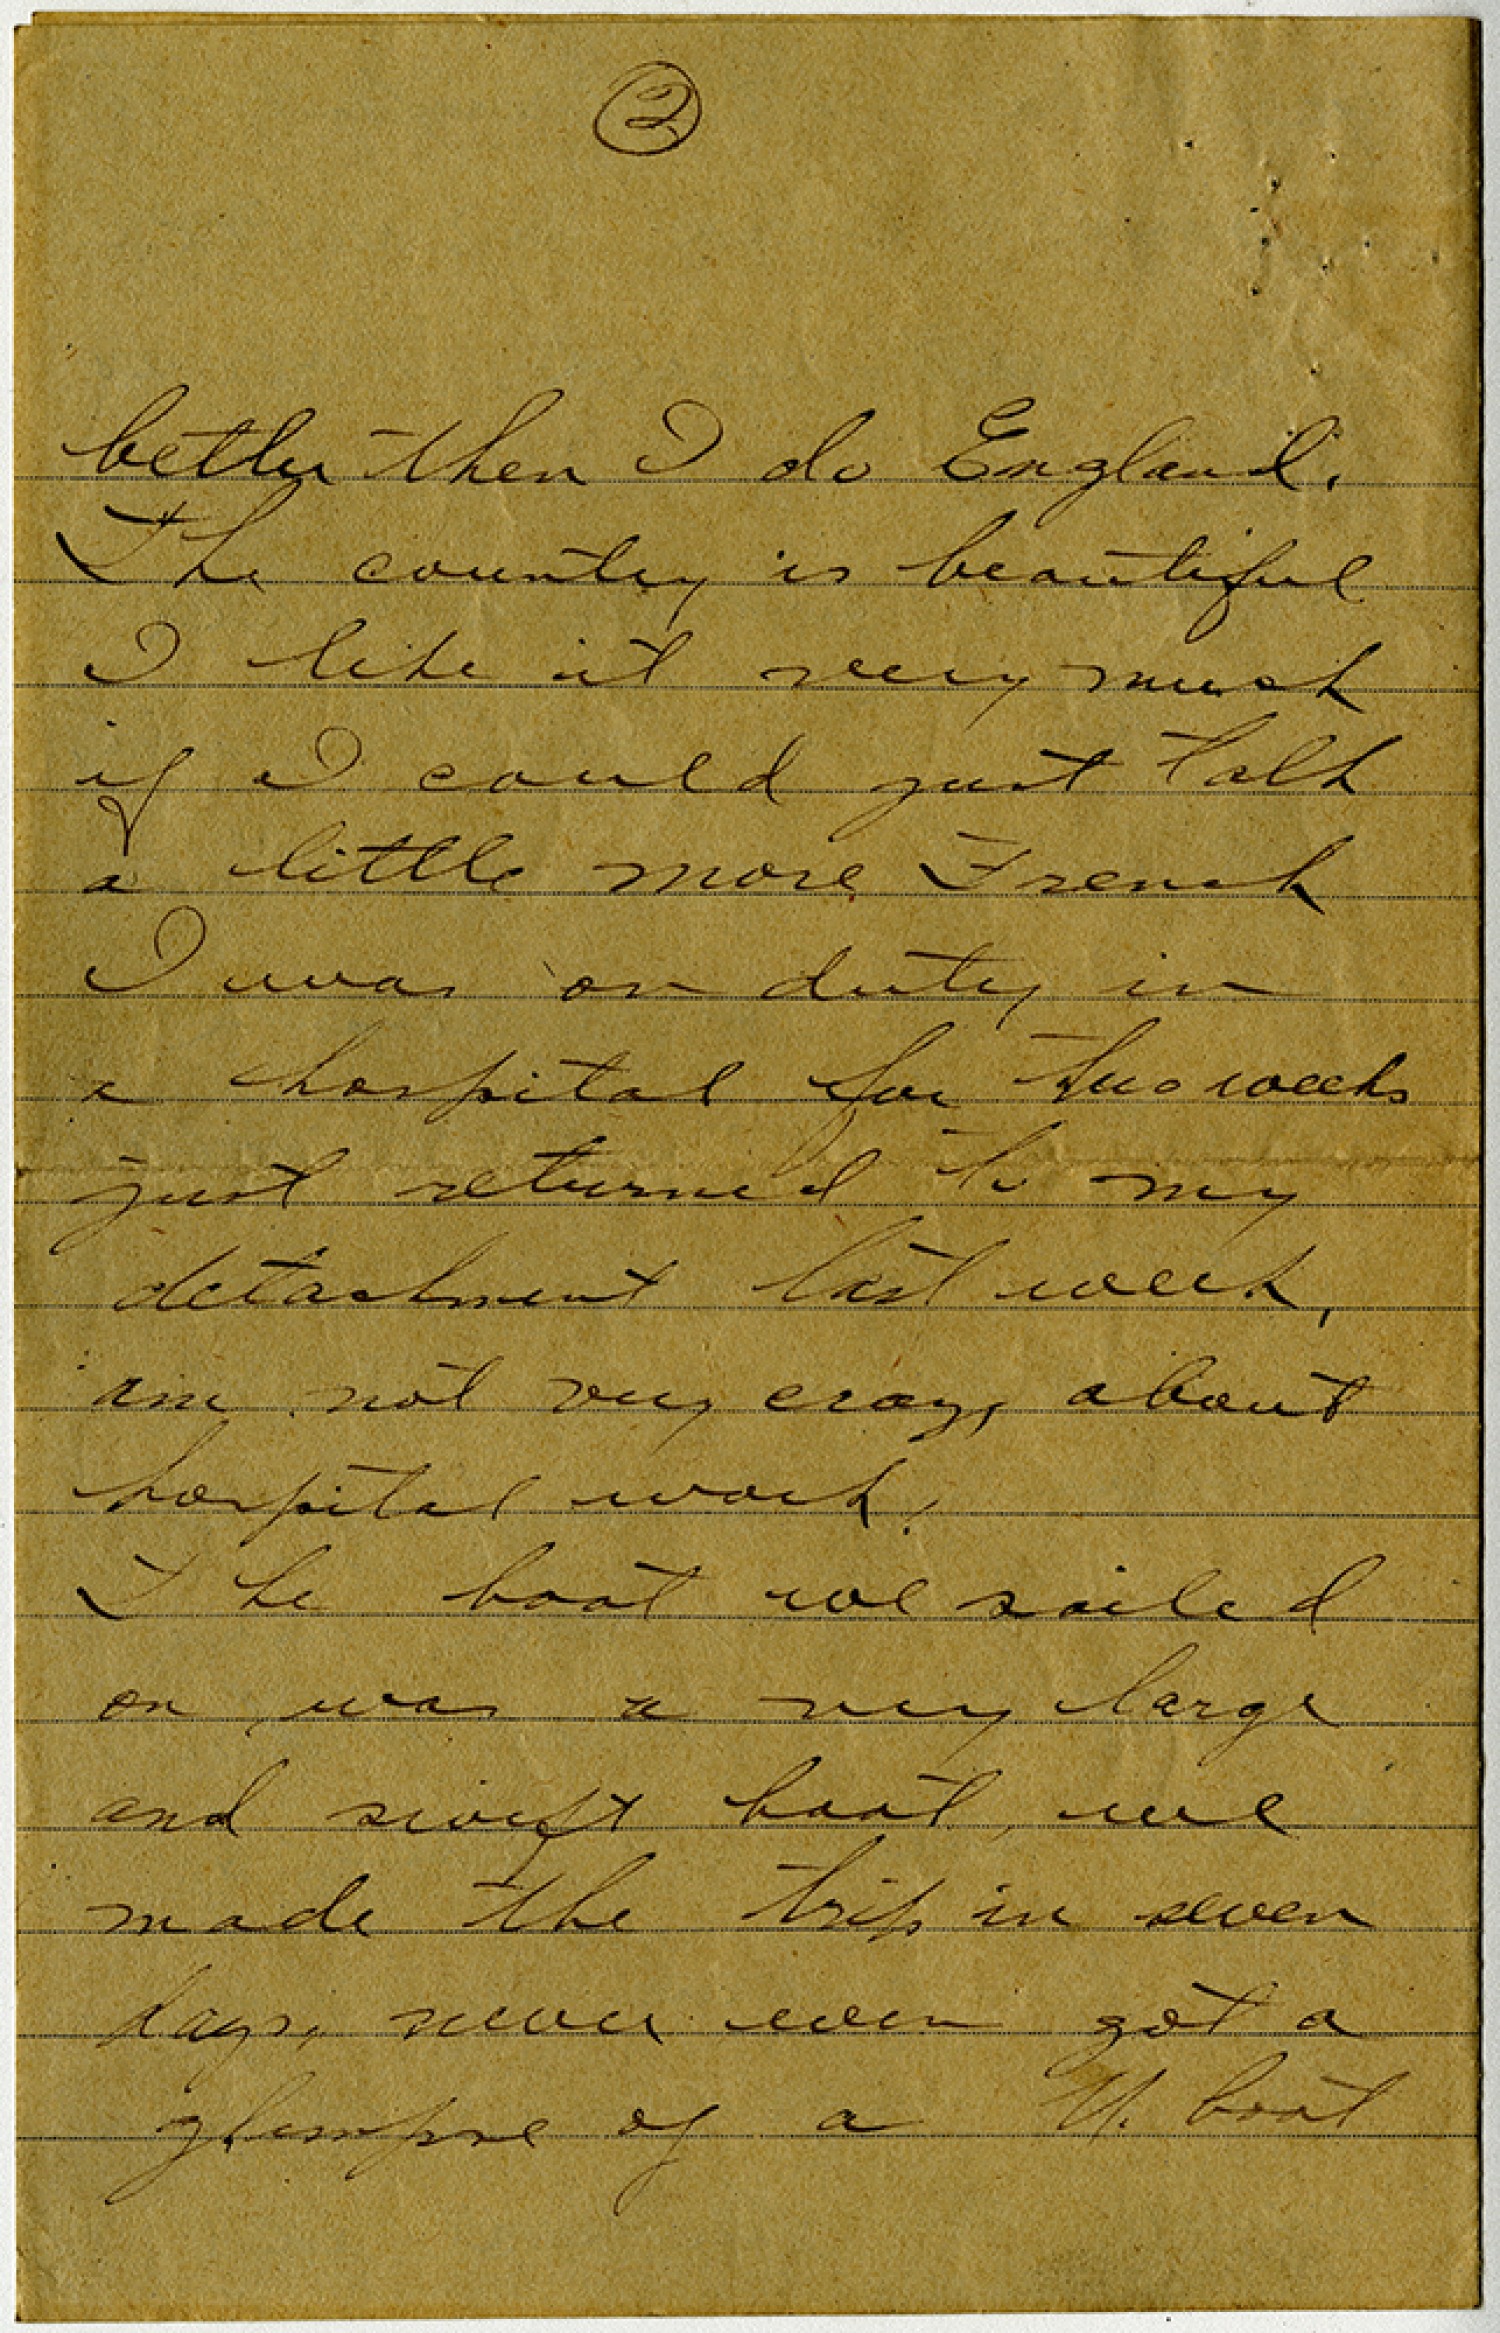 2
better then I do England.
The country is beautiful
I like it very much
if I could just talk
a little more French
I was on duty in
a hospital for two weeks
just returned to my
detachment last week,
am not very crazy about
hospital work.
The boat we sailed
on was a very large
and swift boat, we
made the trip in seven
days, never even got a
glimpse of a U. boat